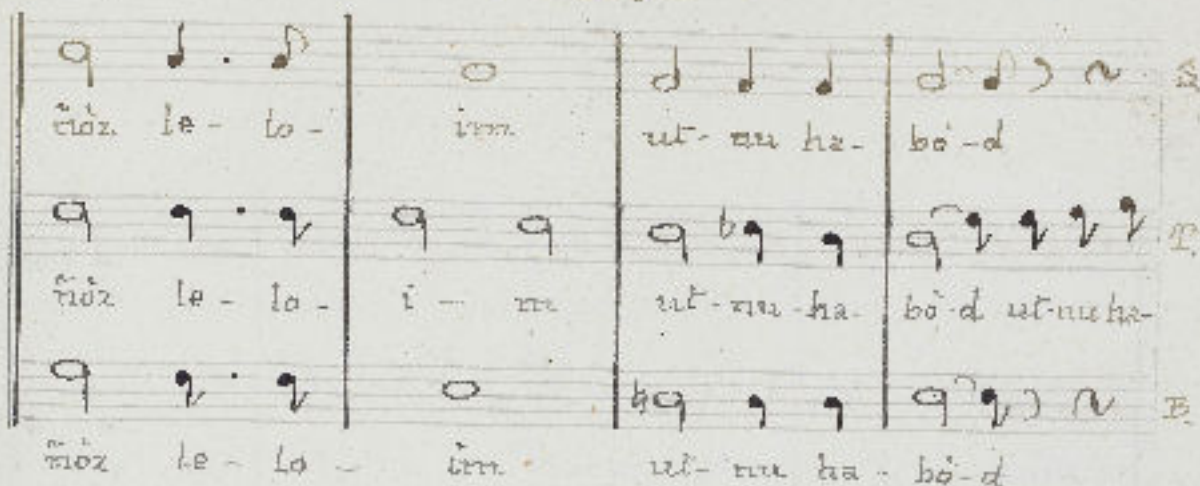 ñòz le - lo - im ut - nu ha - bò - d
T.
ñòz le - lo - i - m ut - nu - ha - bò - d ut - nu ha -
B.
ñòz le - lo - im ut - nu ha - bò - d